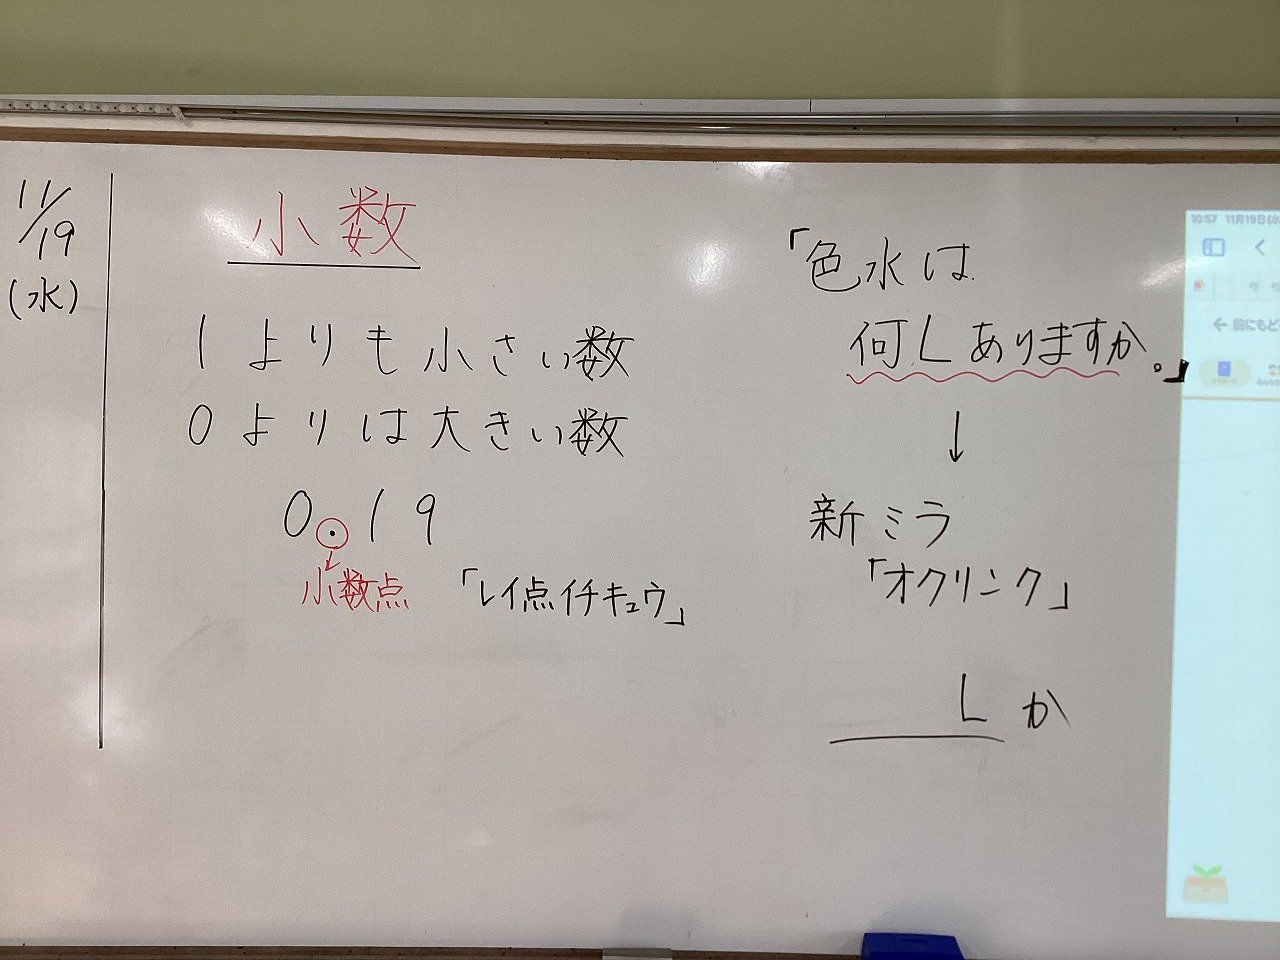 11/19
(水)
小数
1よりも小さい数
0よりは大きい数
0.19
小数点 「レイ点イチキュウ」
「色水は
何Lありますか。」
↓
新ミラ
「オクリンク」
L か
10:57 11月19日(水
前にもど